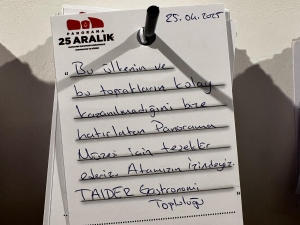 25.04.2025
PANORAMA
25 ARALIK
"Bu ülkenin ve
bu toprakların kolay
kazanılmadığını bize
hatırlatan Panorama
Müzesi için teşekkür
ederiz. Atamızın İzindeyiz.
TAIDER Gastronomi
Topluluğu